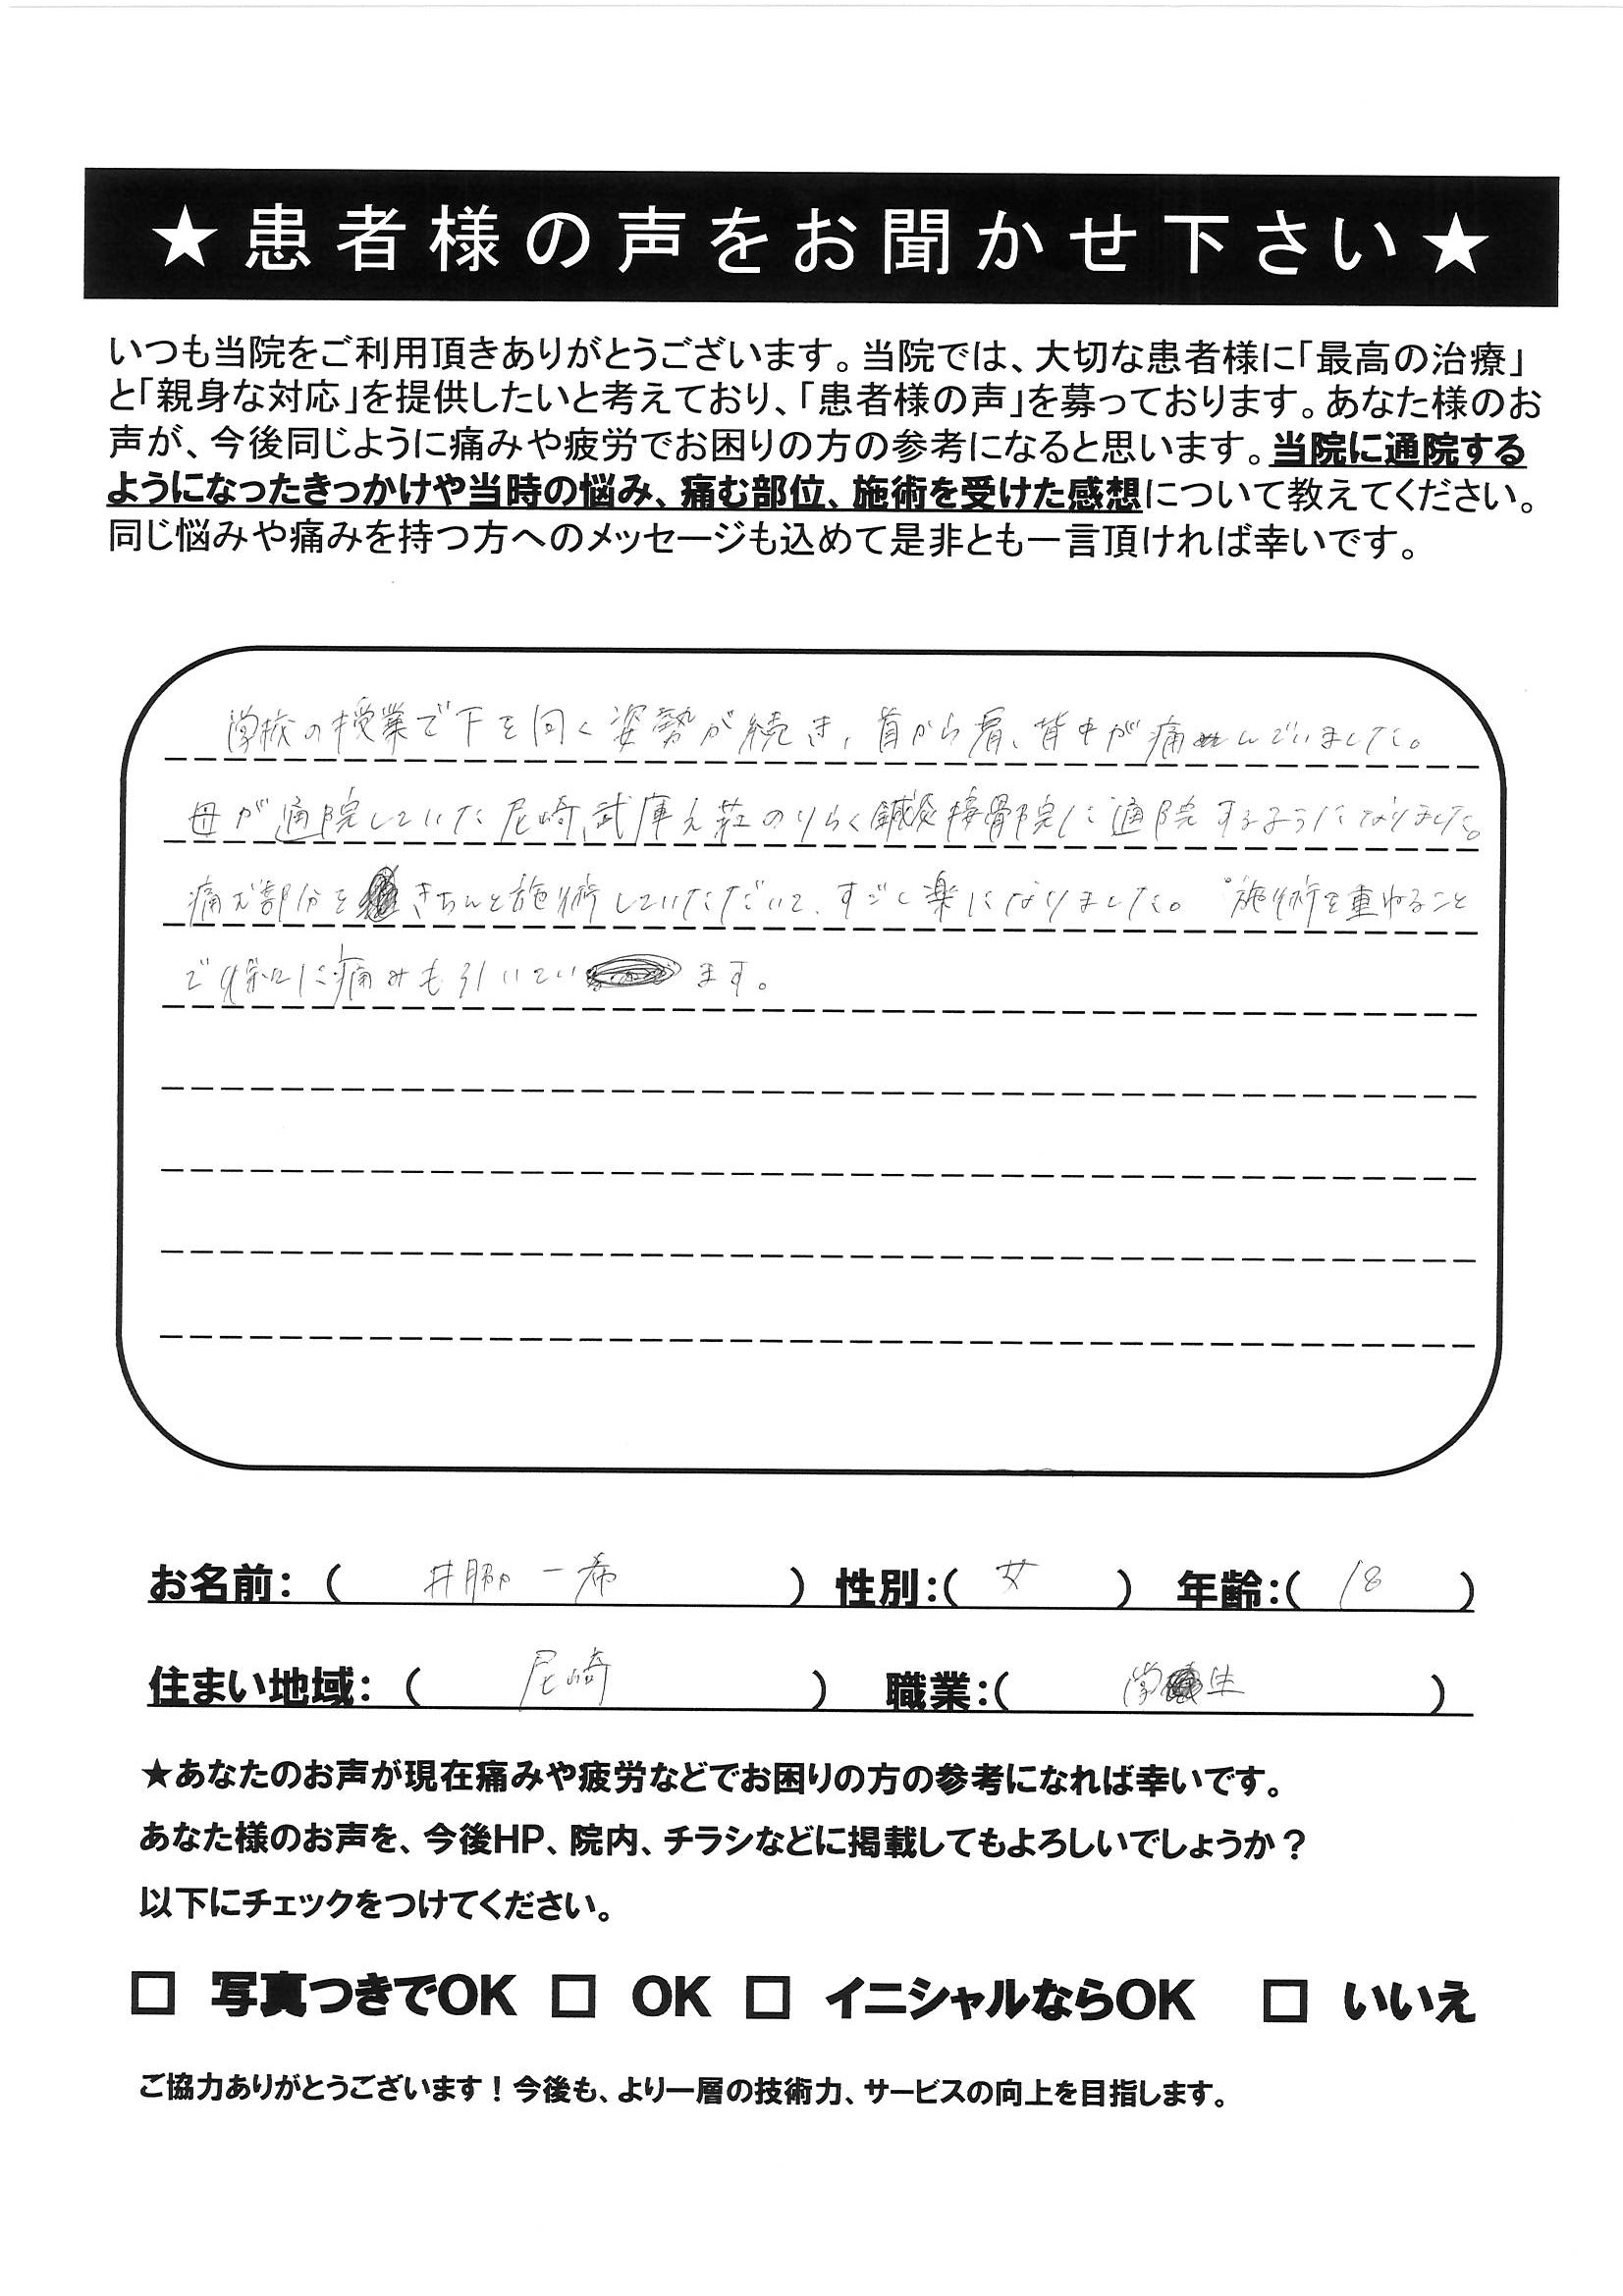 ★患者様の声をお聞かせ下さい★
いつも当院をご利用頂きありがとうございます。当院では、大切な患者様に「最高の治療」
と「親身な対応」を提供したいと考えており、「患者様の声」を募っております。あなた様のお
声が、今後同じように痛みや疲労でお困りの方の参考になると思います。当院に通院する
ようになったきっかけや当時の悩み、痛む部位、施術を受けた感想について教えてください。
同じ悩みや痛みを持つ方へのメッセージも込めて是非とも一言頂ければ幸いです。
学校の授業で下を向く姿勢が続き、首から肩、背中が痛んでいました。
母が通院していた尼崎、武庫之荘のりらく鍼灸接骨院に通院するようになりました。
痛む部分をきちんと施術していただいて、すごく楽になりました。施術を重ねること
で徐々に痛みも引いています。
お名前：（ 井脇 一希 ） 性別：（ 女 ） 年齢：（ 18 ）
住まい地域：（ 尼崎 ） 職業：（ 学生 ）
★あなたのお声が現在痛みや疲労などでお困りの方の参考になれば幸いです。
あなた様のお声を、今後HP、院内、チラシなどに掲載してもよろしいでしょうか？
以下にチェックをつけてください。
□ 写真つきでOK □ OK □ イニシャルならOK □ いいえ
ご協力ありがとうございます！今後も、より一層の技術力、サービスの向上を目指します。